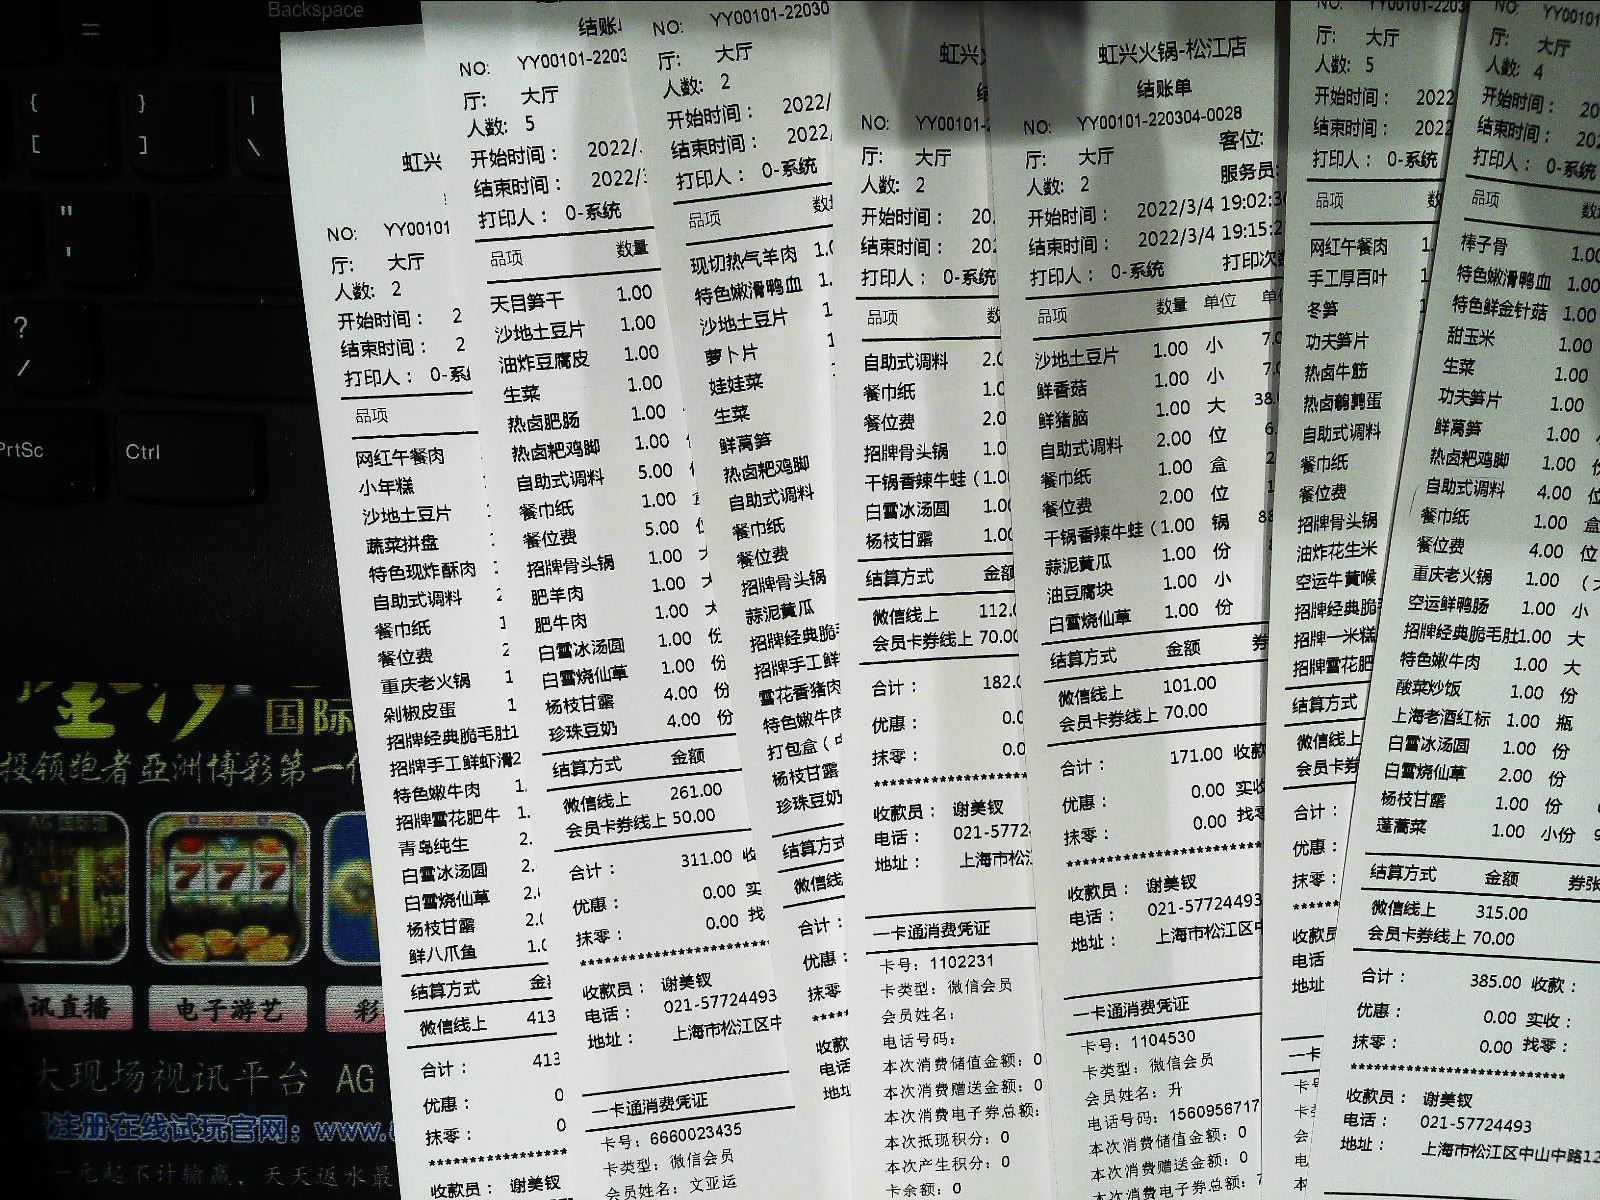 Backspace
=
{
[
}
]
|
\
"
'
?
/
PrtSc
Ctrl
国际
投领跑者亞洲博彩第一
7 7 7
视讯直播
电子游艺
彩
大现场视讯平台 AG
注册在线试玩官网：www.
一元起不计输赢，天天返水最
虹兴
NO: YY00101
厅: 大厅
人数: 2
开始时间： 2
结束时间： 2
打印人： 0-系
品项
网红午餐肉
小年糕
沙地土豆片
蔬菜拼盘
特色现炸酥肉
自助式调料 2
餐巾纸 1
餐位费 2
重庆老火锅 1
剁椒皮蛋 1
招牌经典脆毛肚1
招牌手工鲜虾滑2
特色嫩牛肉 1.
招牌雪花肥牛 1.
青岛纯生 2.
白雪冰汤圆 2.
白雪烧仙草 2.
杨枝甘露 2.0
鲜八爪鱼 1.0
结算方式
微信线上 413
合计： 413
优惠： 0
抹零： 0
******************
收款员： 谢美钗
结账
NO: YY00101-2203
厅: 大厅
人数: 5
开始时间： 2022/
结束时间： 2022/
打印人： 0-系统
品项 数量
天目笋干 1.00
沙地土豆片 1.00
油炸豆腐皮 1.00
生菜 1.00
热卤肥肠 1.00
热卤粑鸡脚 1.00
自助式调料 5.00
餐巾纸 1.00
餐位费 5.00
招牌骨头锅 1.00
肥羊肉 1.00
肥牛肉 1.00 大
白雪冰汤圆 1.00 份
白雪烧仙草 1.00 份
杨枝甘露 4.00 份
珍珠豆奶 4.00 份
结算方式 金额
微信线上 261.00
会员卡券线上 50.00
合计： 311.00 收
优惠： 0.00 实
抹零： 0.00 找
******************
收款员： 谢美钗
电话： 021-57724493
地址： 上海市松江区中
一卡通消费凭证
卡号：6660023435
卡类型：微信会员
会员姓名：文亚运
NO: YY00101-22030
厅: 大厅
人数: 2
开始时间： 2022/
结束时间： 2022/
打印人： 0-系统
品项
现切热气羊肉 1.0
特色嫩滑鸭血 1.
沙地土豆片 1
萝卜片
娃娃菜
生菜
鲜莴笋
热卤粑鸡脚
自助式调料
餐巾纸
餐位费
招牌骨头锅
蒜泥黄瓜
招牌经典脆
招牌手工鲜
雪花香猪肉
特色嫩牛肉
打包盒（
杨枝甘露
珍珠豆奶
结算方式
微信线
合计：
优惠：
抹零：
收款
电话
地址
虹兴
NO: YY00101-
厅: 大厅
人数: 2
开始时间： 20
结束时间： 202
打印人： 0-系统
品项
自助式调料 2.0
餐巾纸 1.0
餐位费 2.0
招牌骨头锅 1.0
干锅香辣牛蛙（1.00
白雪冰汤圆 1.00
杨枝甘露 1.00
结算方式 金额
微信线上 112.0
会员卡券线上 70.00
合计： 182.0
优惠： 0.0
抹零： 0.0
******************
收款员： 谢美钗
电话： 021-5772
地址： 上海市松江
一卡通消费凭证
卡号：1102231
卡类型：微信会员
会员姓名：
电话号码：
本次消费储值金额：0
本次消费赠送金额：0
本次消费电子券总额：
本次抵现积分：0
本次产生积分：0
卡余额：0
虹兴火锅-松江店
结账单
NO: YY00101-220304-0028
厅: 大厅 客位:
人数: 2 服务员:
开始时间： 2022/3/4 19:02:3
结束时间： 2022/3/4 19:15:2
打印人： 0-系统 打印次
品项 数量 单位
沙地土豆片 1.00 小 7.0
鲜香菇 1.00 小 7.
鲜猪脑 1.00 大 38.
自助式调料 2.00 位 6.
餐巾纸 1.00 盒 2
餐位费 2.00 位 1
干锅香辣牛蛙（1.00 锅 88
蒜泥黄瓜 1.00 份
油豆腐块 1.00 小
白雪烧仙草 1.00 份
结算方式 金额 券
微信线上 101.00
会员卡券线上 70.00
合计： 171.00 收款
优惠： 0.00 实收
抹零： 0.00 找零
******************
收款员： 谢美钗
电话： 021-57724493
地址： 上海市松江区中
一卡通消费凭证
卡号：1104530
卡类型：微信会员
会员姓名：升
电话号码：1560956717
本次消费储值金额：0
本次消费赠送金额：0
本次消费电子券总额：7
YY00101-2203
厅: 大厅
人数: 5
开始时间： 2022
结束时间： 2022
打印人： 0-系统
品项 数
网红午餐肉 1.
手工厚百叶 1
冬笋
功夫笋片
热卤牛筋
热卤鹌鹑蛋
自助式调料
餐巾纸
餐位费
招牌骨头锅
油炸花生米
空运牛黄喉
招牌经典脆
招牌一米糕
招牌雪花肥
结算方式
微信线上
会员卡券
合计：
优惠：
抹零：
收款员
电话
地址
一卡
卡号
NO: YY00101
厅: 大厅
人数: 4
开始时间： 20
结束时间： 202
打印人： 0-系统
品项
棒子骨 1.00
特色嫩滑鸭血 1.00
特色鲜金针菇 1.00
甜玉米 1.00
生菜 1.00
功夫笋片 1.00
鲜莴笋 1.00
热卤粑鸡脚 1.00 份
自助式调料 4.00 位
餐巾纸 1.00 盒
餐位费 4.00 位
重庆老火锅 1.00 （大
空运鲜鸭肠 1.00 小
招牌经典脆毛肚1.00 大
特色嫩牛肉 1.00 大
酸菜炒饭 1.00 份
上海老酒红标 1.00 瓶
白雪冰汤圆 1.00 份
白雪烧仙草 2.00 份
杨枝甘露 1.00 份
蓬蒿菜 1.00 小份 9
结算方式 金额 券张
微信线上 315.00
会员卡券线上 70.00
合计： 385.00 收款：
优惠： 0.00 实收：
抹零： 0.00 找零：
******************
收款员： 谢美钗
电话： 021-57724493
地址： 上海市松江区中山中路12